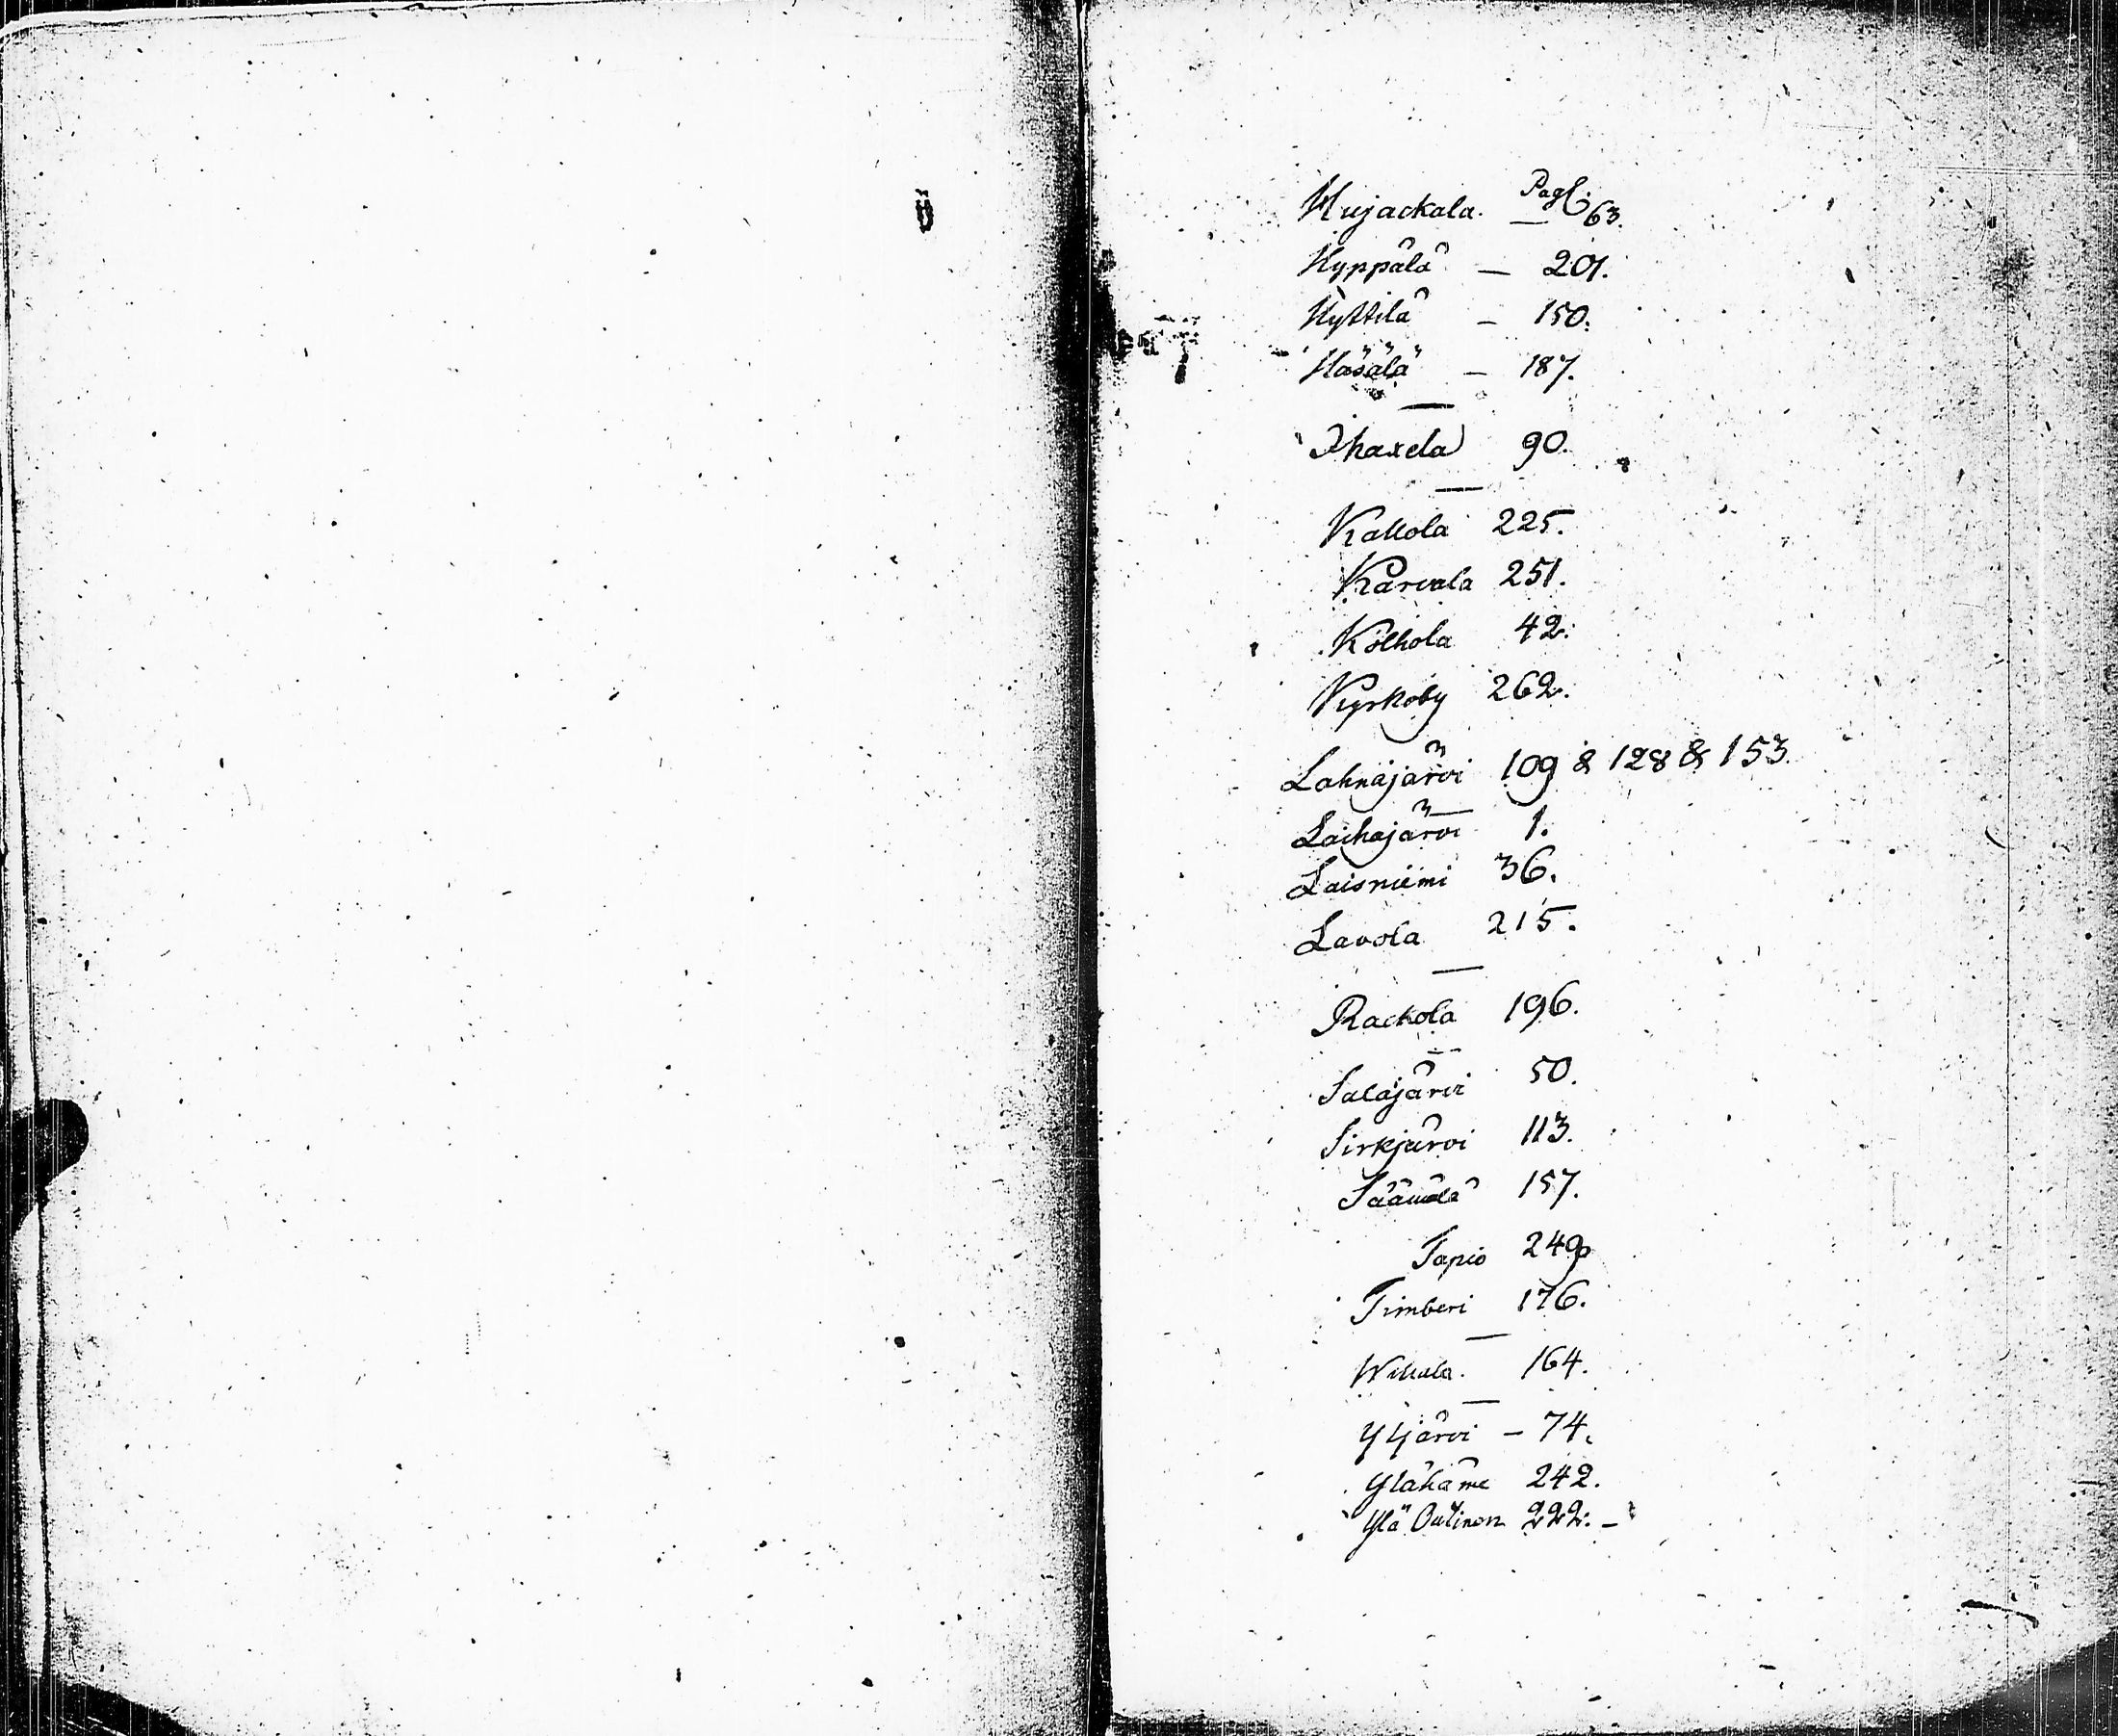 Hujackala. — Pag. 63.
Hyppälä — 201.
Hyttilä — 150.
Häsälä — 187.
Ihaxela 90.
Kallola 225.
Karvala 251.
Kolhola 42.
Kyrkoby 262.
Lahnajärvi 109 & 128 & 153.
Laihajärvi 1.
Laisniemi 36.
Lavola 215.
Rackola 196.
Salajärvi 50.
Sirkjärvi 113.
157.
Tapio 249.
Timberi 176.
164.
Yljärvi — 74.
Ylähäme 242.
Ylä Outinen 222. —